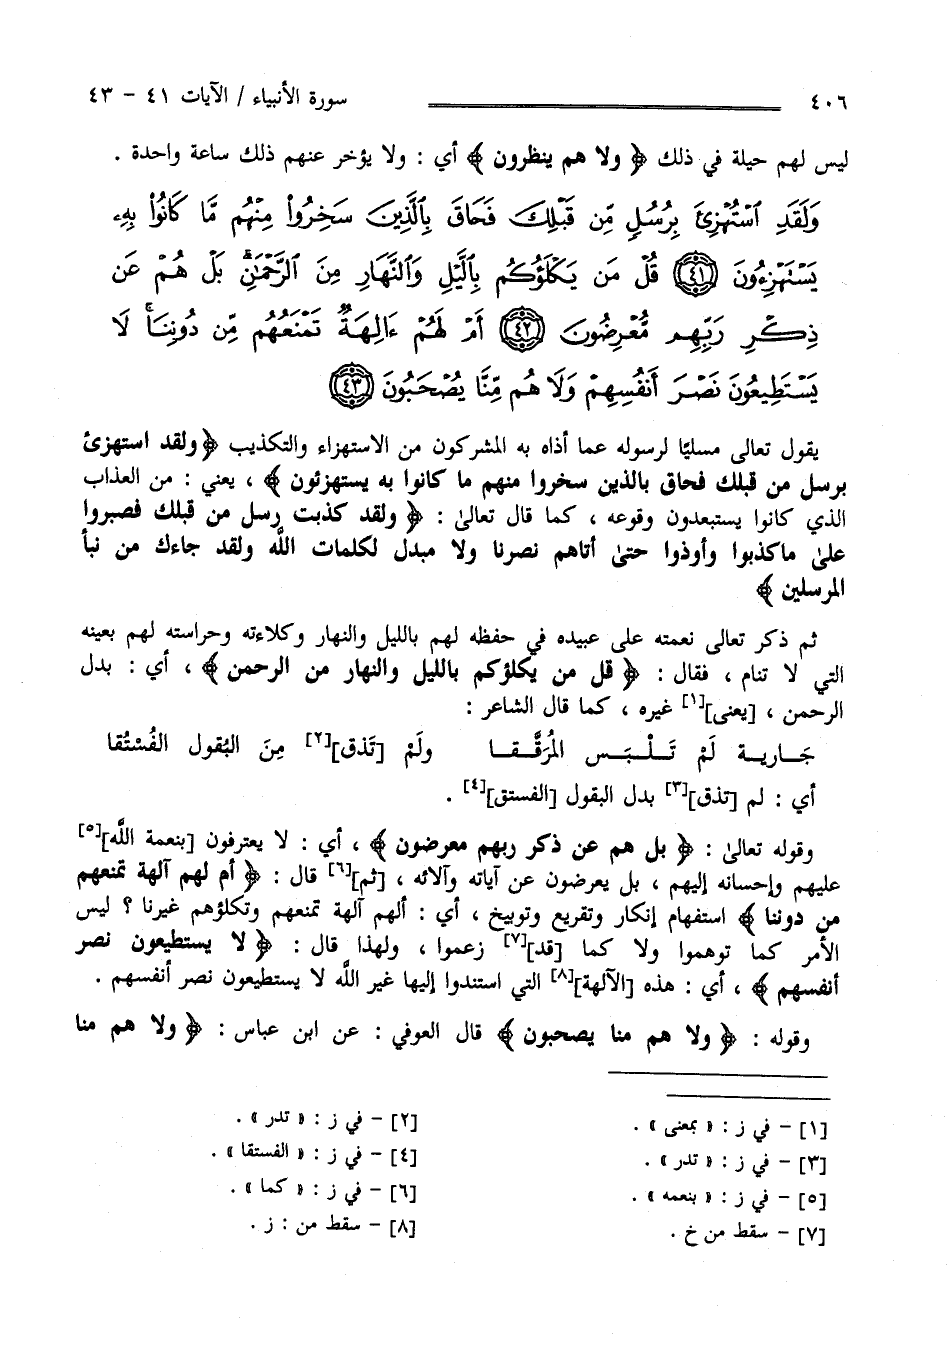 ٤٠٦ سورة الأنبياء / الآيات ٤١ - ٤٣
ليس لهم حيلة في ذلك ﴿ ولا هم ينظرون ﴾ أي : ولا يؤخر عنهم ذلك ساعة واحدة .
وَلَقَدِ ٱسۡتُهۡزِئَ بِرُسُلٖ مِّن قَبۡلِكَ فَحَاقَ بِٱلَّذِينَ سَخِرُواْ مِنۡهُم مَّا كَانُواْ بِهِۦ
يَسۡتَهۡزِءُونَ ﴿٤١﴾ قُلۡ مَن يَكۡلَؤُكُم بِٱلَّيۡلِ وَٱلنَّهَارِ مِنَ ٱلرَّحۡمَٰنِۚ بَلۡ هُمۡ عَن
ذِكۡرِ رَبِّهِم مُّعۡرِضُونَ ﴿٤٢﴾ أَمۡ لَهُمۡ ءَالِهَةٞ تَمۡنَعُهُم مِّن دُونِنَاۚ لَا
يَسۡتَطِيعُونَ نَصۡرَ أَنفُسِهِمۡ وَلَا هُم مِّنَّا يُصۡحَبُونَ ﴿٤٣﴾
يقول تعالى مسليًا لرسوله عما أذاه به المشركون من الاستهزاء والتكذيب ﴿ ولقد استهزئ
برسل من قبلك فحاق بالذين سخروا منهم ما كانوا به يستهزئون ﴾ ، يعني : من العذاب
الذي كانوا يستبعدون وقوعه ، كما قال تعالىٰ : ﴿ ولقد كذبت رسل من قبلك فصبروا
علىٰ ماكذبوا وأوذوا حتىٰ أتاهم نصرنا ولا مبدل لكلمات اللَّه ولقد جاءك من نبأ
المرسلين ﴾
ثم ذكر تعالى نعمته على عبيده في حفظه لهم بالليل والنهار وكلاءته وحراسته لهم بعينه
التي لا تنام ، فقال : ﴿ قل من يكلؤكم بالليل والنهار من الرحمن ﴾ ، أي : بدل
الرحمن ، [يعنى][١] غيره ، كما قال الشاعر :
جَـــاريـة لَمْ تَـلْـبَـس المُرَقَّـقـا ولَمْ [تَذق][٢] مِنَ البُقول الفُسْتُقا
أي : لم [تذق][٣] بدل البقول [الفستق][٤] .
وقوله تعالىٰ : ﴿ بل هم عن ذكر ربهم معرضون ﴾ ، أي : لا يعترفون [بنعمة اللَّه][٥]
عليهم وإحسانه إليهم ، بل يعرضون عن آياته وآلائه ، [ثم][٦] قال : ﴿ أم لهم آلهة تمنعهم
من دوننا ﴾ استفهام إنكار وتقريع وتوبيخ ، أي : ألهم آلهة تمنعهم وتكلؤهم غيرنا ؟ ليس
الأمر كما توهموا ولا كما [قد][٧] زعموا ، ولهذا قال : ﴿ لا يستطيعون نصر
أنفسهم ﴾ ، أي : هذه [الآلهة][٨] التي استندوا إليها غير اللَّه لا يستطيعون نصر أنفسهم .
وقوله : ﴿ ولا هم منا يصحبون ﴾ قال العوفي : عن ابن عباس : ﴿ ولا هم منا
[١] - في ز : « بمعنى » . [٢] - في ز : « تدر » .
[٣] - في ز : « تدر » . [٤] - في ز : « الفستقا » .
[٥] - في ز : « بنعمه » . [٦] - في ز : « كما » .
[٧] - سقط من خ . [٨] - سقط من : ز .